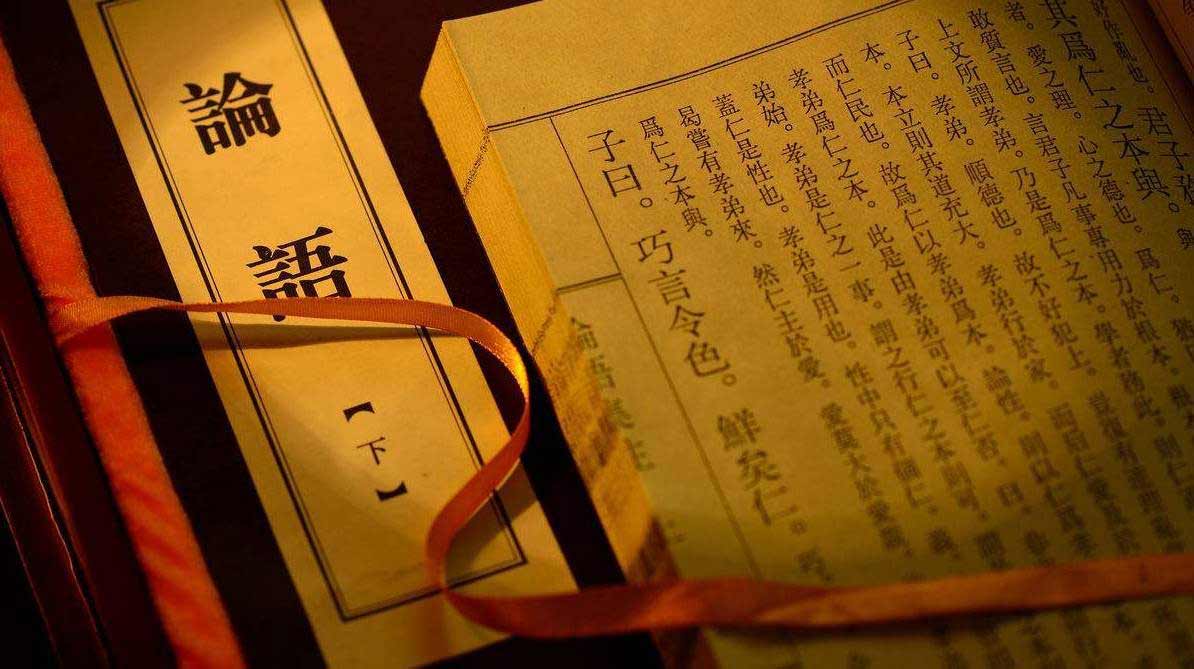 論語
【下】
好作亂也。君子務
其爲仁之本與。
者。愛之理。心之德也。爲仁。猶
敢質言也。言君子凡事專用力於根本。根本
上文所謂孝弟。乃是爲仁之本。學者務此。則仁
子曰。孝弟。順德也。故不好犯上。豈復有逆理
本。本立則其道充大。孝弟行於家。而後仁愛
而仁民也。故爲仁以孝弟爲本。論性。則以仁爲
孝弟爲仁之本。此是由孝弟可以至仁否。曰。
弟始。孝弟是仁之一事。謂之行仁之本則可。
蓋仁是性也。孝弟是用也。性中只有個仁。義。
曷嘗有孝弟來。然仁主於愛。愛莫大於愛親。
爲仁之本與。
子曰。巧言令色。鮮矣仁。巧。
論語集註